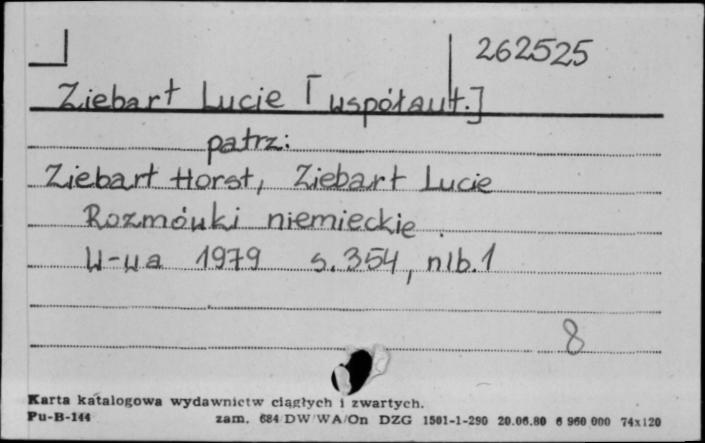 262525
Ziebart Lucie [współaut.]
patrz:
Ziebart Horst, Ziebart Lucie
Rozmówki niemieckie.
W-wa 1979 s. 354, nlb. 1
8
Karta katalogowa wydawnictw ciągłych i zwartych.
Pu-B-144 zam. 684/DW/WA/On DZG 1501-1-290 20.06.80 6 960 000 74x120